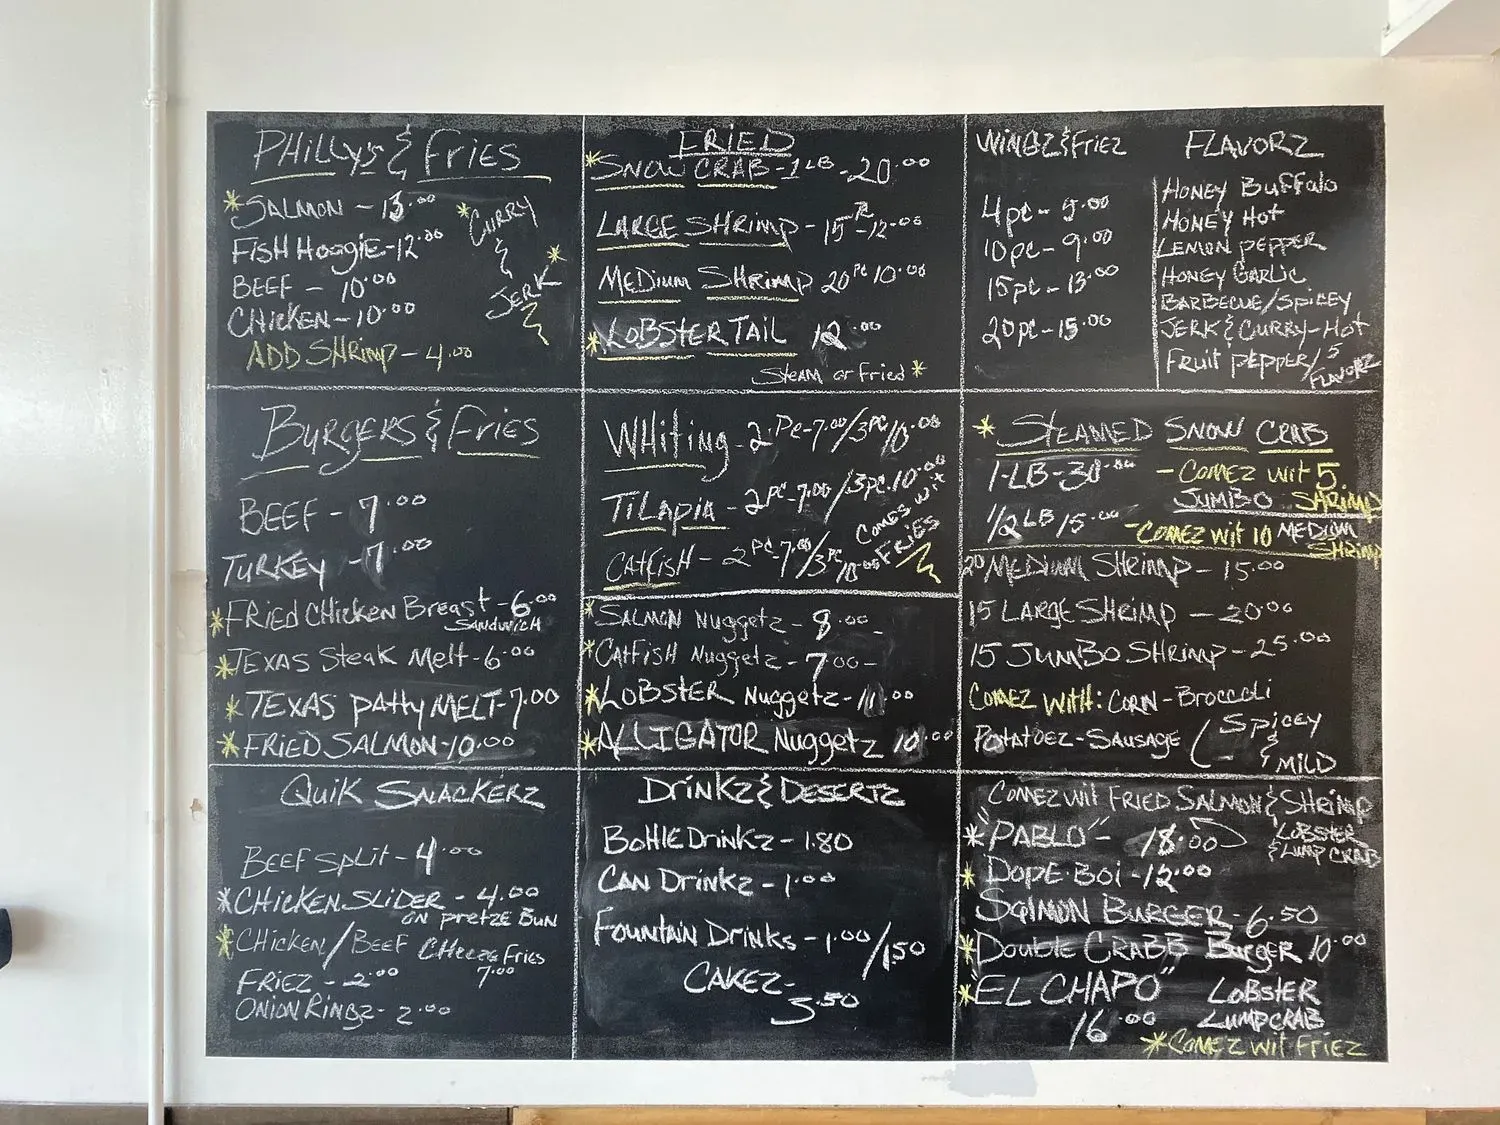 PHILLY'S & FRIES
*SALMON - 13.00
FISH HOOGIE - 12.00
BEEF - 10.00
CHICKEN - 10.00
ADD SHRIMP - 4.00
*CURRY
&
JERK*
FRIED
*SNOW CRAB - 1 LB - 20.00
LARGE SHRIMP - 15 - 12.00
MEDIUM SHRIMP 20 PC 10.00
*LOBSTER TAIL 12.00
STEAM OR FRIED *
WINGZ & FRIEZ
4pc - 5.00
10pc - 9.00
15pc - 13.00
20pc - 15.00
FLAVORZ
HONEY BUFFALO
HONEY HOT
LEMON PEPPER
HONEY GARLIC
BARBECUE/SPICEY
JERK & CURRY - HOT
FRUIT PEPPER/5
FLAVORZ
BURGERS & FRIES
BEEF - 7.00
TURKEY - 7.00
*FRIED CHICKEN BREAST - 6.00
SANDWICH
*TEXAS STEAK MELT - 6.00
*TEXAS PATTY MELT - 7.00
*FRIED SALMON - 10.00
WHITING - 2 PC - 7.00/3PC/10.00
TILAPIA - 2PC - 7.00/3PC.10.00
CATFISH - 2 PC - 7.00/3PC 10.00
COMES WIT
FRIES
*SALMON NUGGETZ - 8.00 -
*CATFISH NUGGETZ - 7.00 -
*LOBSTER NUGGETZ - 11.00
*ALLIGATOR NUGGETZ 10.00
*STEAMED SNOW CRAB
1-LB - 30.00 - COMEZ WIT 5
JUMBO SHRIMP
1/2 LB 15.00 - COMEZ WIT 10 MEDIUM
SHRIMP
20 MEDIUM SHRIMP - 15.00
15 LARGE SHRIMP - 20.00
15 JUMBO SHRIMP - 25.00
COMEZ WITH: CORN - BROCCOLI
POTATOEZ - SAUSAGE
(SPICEY
&
MILD
QUIK SNACKERZ
BEEF SPLIT - 4.00
*CHICKEN SLIDER - 4.00
ON PRETZE BUN
*CHICKEN/BEEF CHEEZE FRIES
7.00
FRIEZ - 2.00
ONION RINGZ - 2.00
DRINKZ & DESERTZ
BOTTLE DRINKZ - 1.80
CAN DRINKZ - 1.00
FOUNTAIN DRINKS - 1.00/1.50
CAKEZ -
3.50
COMEZ WIT FRIED SALMON & SHRIMP
*"PABLO" - 18.00
LOBSTER
& LUMP CRAB
*DOPE BOI - 12.00
SALMON BURGER - 6.50
*DOUBLE CRABB BURGER 10.00
*"EL CHAPO" LOBSTER
16.00 LUMPCRAB
*COMEZ WIT FRIEZ